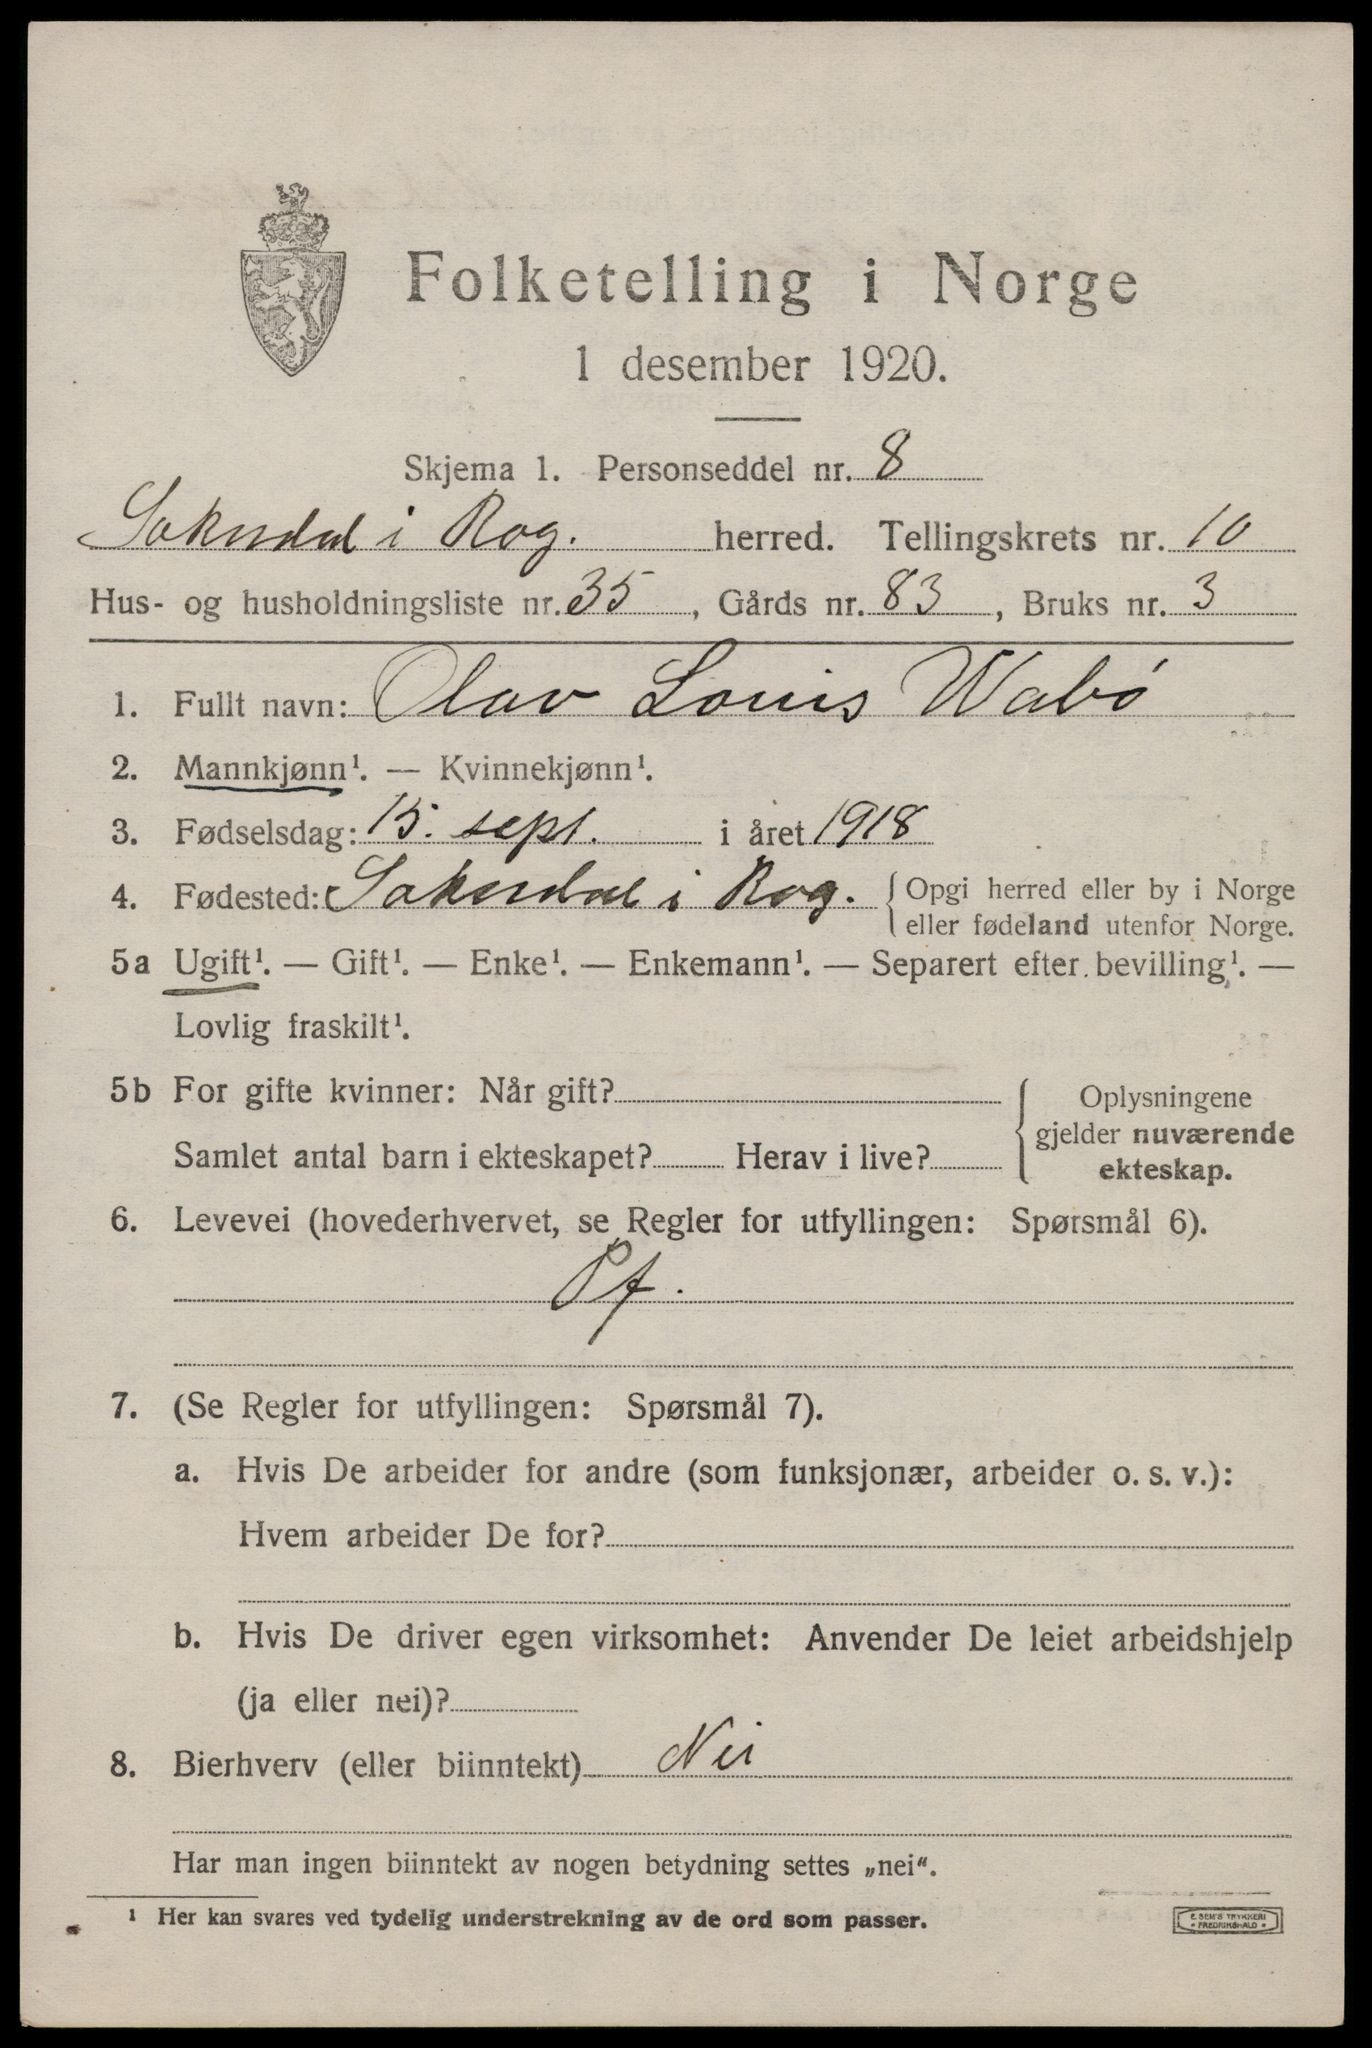 Folketelling i Norge
1 desember 1920.
Skjema 1. Personseddel nr. 8
Sokndal i Rog. herred. Tellingskrets nr. 10
Hus- og husholdningsliste nr. 35, Gårds nr. 83, Bruks nr. 3
1. Fullt navn: Olav Louis Wabø
2. Mannkjønn¹. — Kvinnekjønn¹.
3. Fødselsdag: 15. sept. i året 1918
4. Fødested: Sokndal i Rog. { Opgi herred eller by i Norge
eller fødeland utenfor Norge.
5a Ugift¹. — Gift¹. — Enke¹. — Enkemann¹. — Separert efter bevilling¹. —
Lovlig fraskilt¹.
5b For gifte kvinner: Når gift? { Oplysningene
gjelder nuværende
Samlet antal barn i ekteskapet? Herav i live? ekteskap.
6. Levevei (hovederhvervet, se Regler for utfyllingen: Spørsmål 6).
Pf.
7. (Se Regler for utfyllingen: Spørsmål 7).
a. Hvis De arbeider for andre (som funksjonær, arbeider o. s. v.):
Hvem arbeider De for?
b. Hvis De driver egen virksomhet: Anvender De leiet arbeidshjelp
(ja eller nei)?
8. Bierhverv (eller biinntekt) Nei
Har man ingen biinntekt av nogen betydning settes „nei“.
¹ Her kan svares ved tydelig understrekning av de ord som passer.
E. SEM'S TRYKKERI
• FREDRIKSHALD •